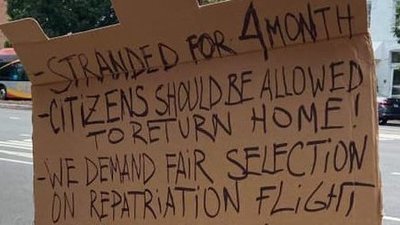 -STRANDED FOR 4 MONTH
-CITIZENS SHOULD BE ALLOWED
TO RETURN HOME!
-WE DEMAND FAIR SELECTION
ON REPATRIATION FLIGHT